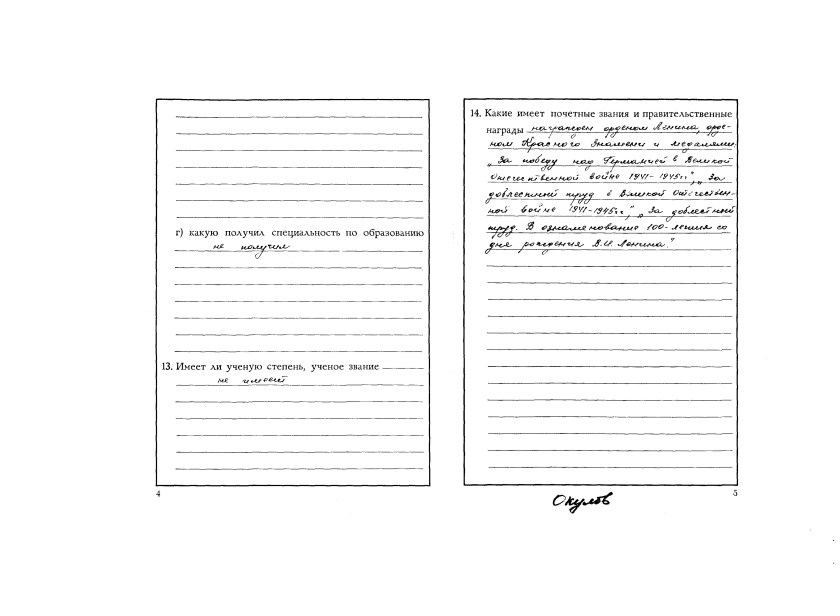 г) какую получил специальность по образованию
не получил
13. Имеет ли ученую степень, ученое звание
не имеет
4
14. Какие имеет почетные звания и правительственные
награды награжден орденом Ленина, орде-
ном Красного Знамени и медалями
„За победу над Германией в Великой
Отечественной войне 1941-1945гг", „За
доблестный труд в Великой Отечествен-
ной войне 1941-1945гг", „За доблестный
труд. В ознаменование 100-летия со
дня рождения В.И. Ленина."
5
Окулов